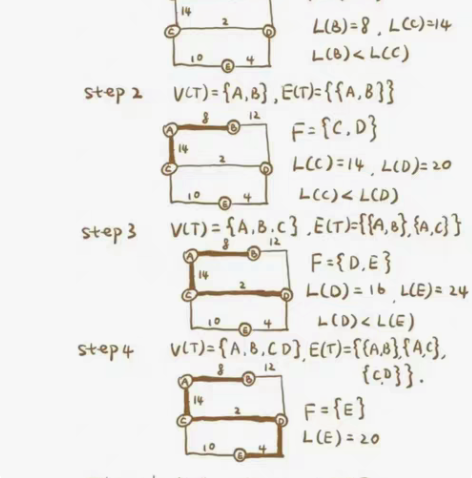 14
2
C
D
10
4
E
L(B)=8, L(C)=14
L(B)<L(C)
step 2 V(T)={A,B}, E(T)={{A,B}}
8
12
A
B
14
2
C
D
10
4
E
F={C,D}
L(C)=14, L(D)=20
L(C)<L(D)
step 3 V(T)={A,B.C}, E(T)={{A,B},{A,C}}
8
12
A
B
14
2
C
D
10
4
E
F={D,E}
L(D)=16, L(E)=24
L(D)<L(E)
step 4 V(T)={A,B,C D}, E(T)={{A,B}{A,C},
{C,D}}.
8
12
A
B
14
2
C
D
10
4
E
F={E}
L(E)=20